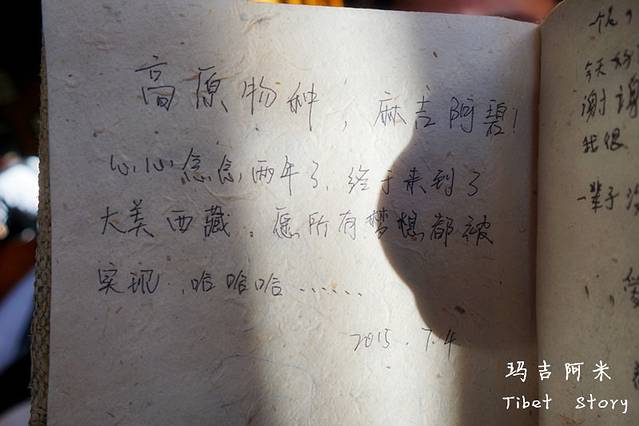 高原物种，麻吉阿碧！
心心念念两年了，终于来到了
大美西藏。愿所有梦想都被
实现，哈哈哈……
2015.7.4
今天
谢谢
我很
一辈子
玛吉阿米
Tibet Story